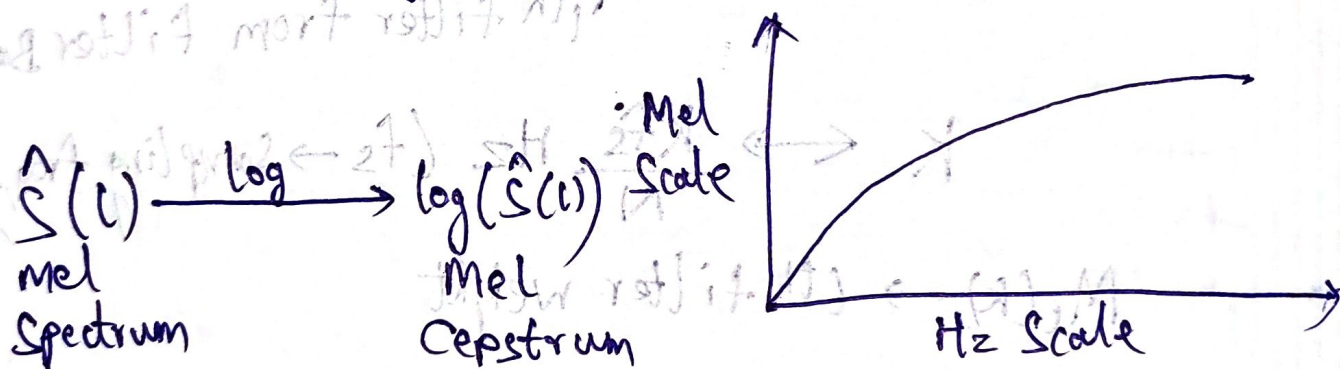 Ŝ(l) log → log(Ŝ(l))
Mel
Spectrum
Mel
Cepstrum
Mel
Scale
Hz Scale